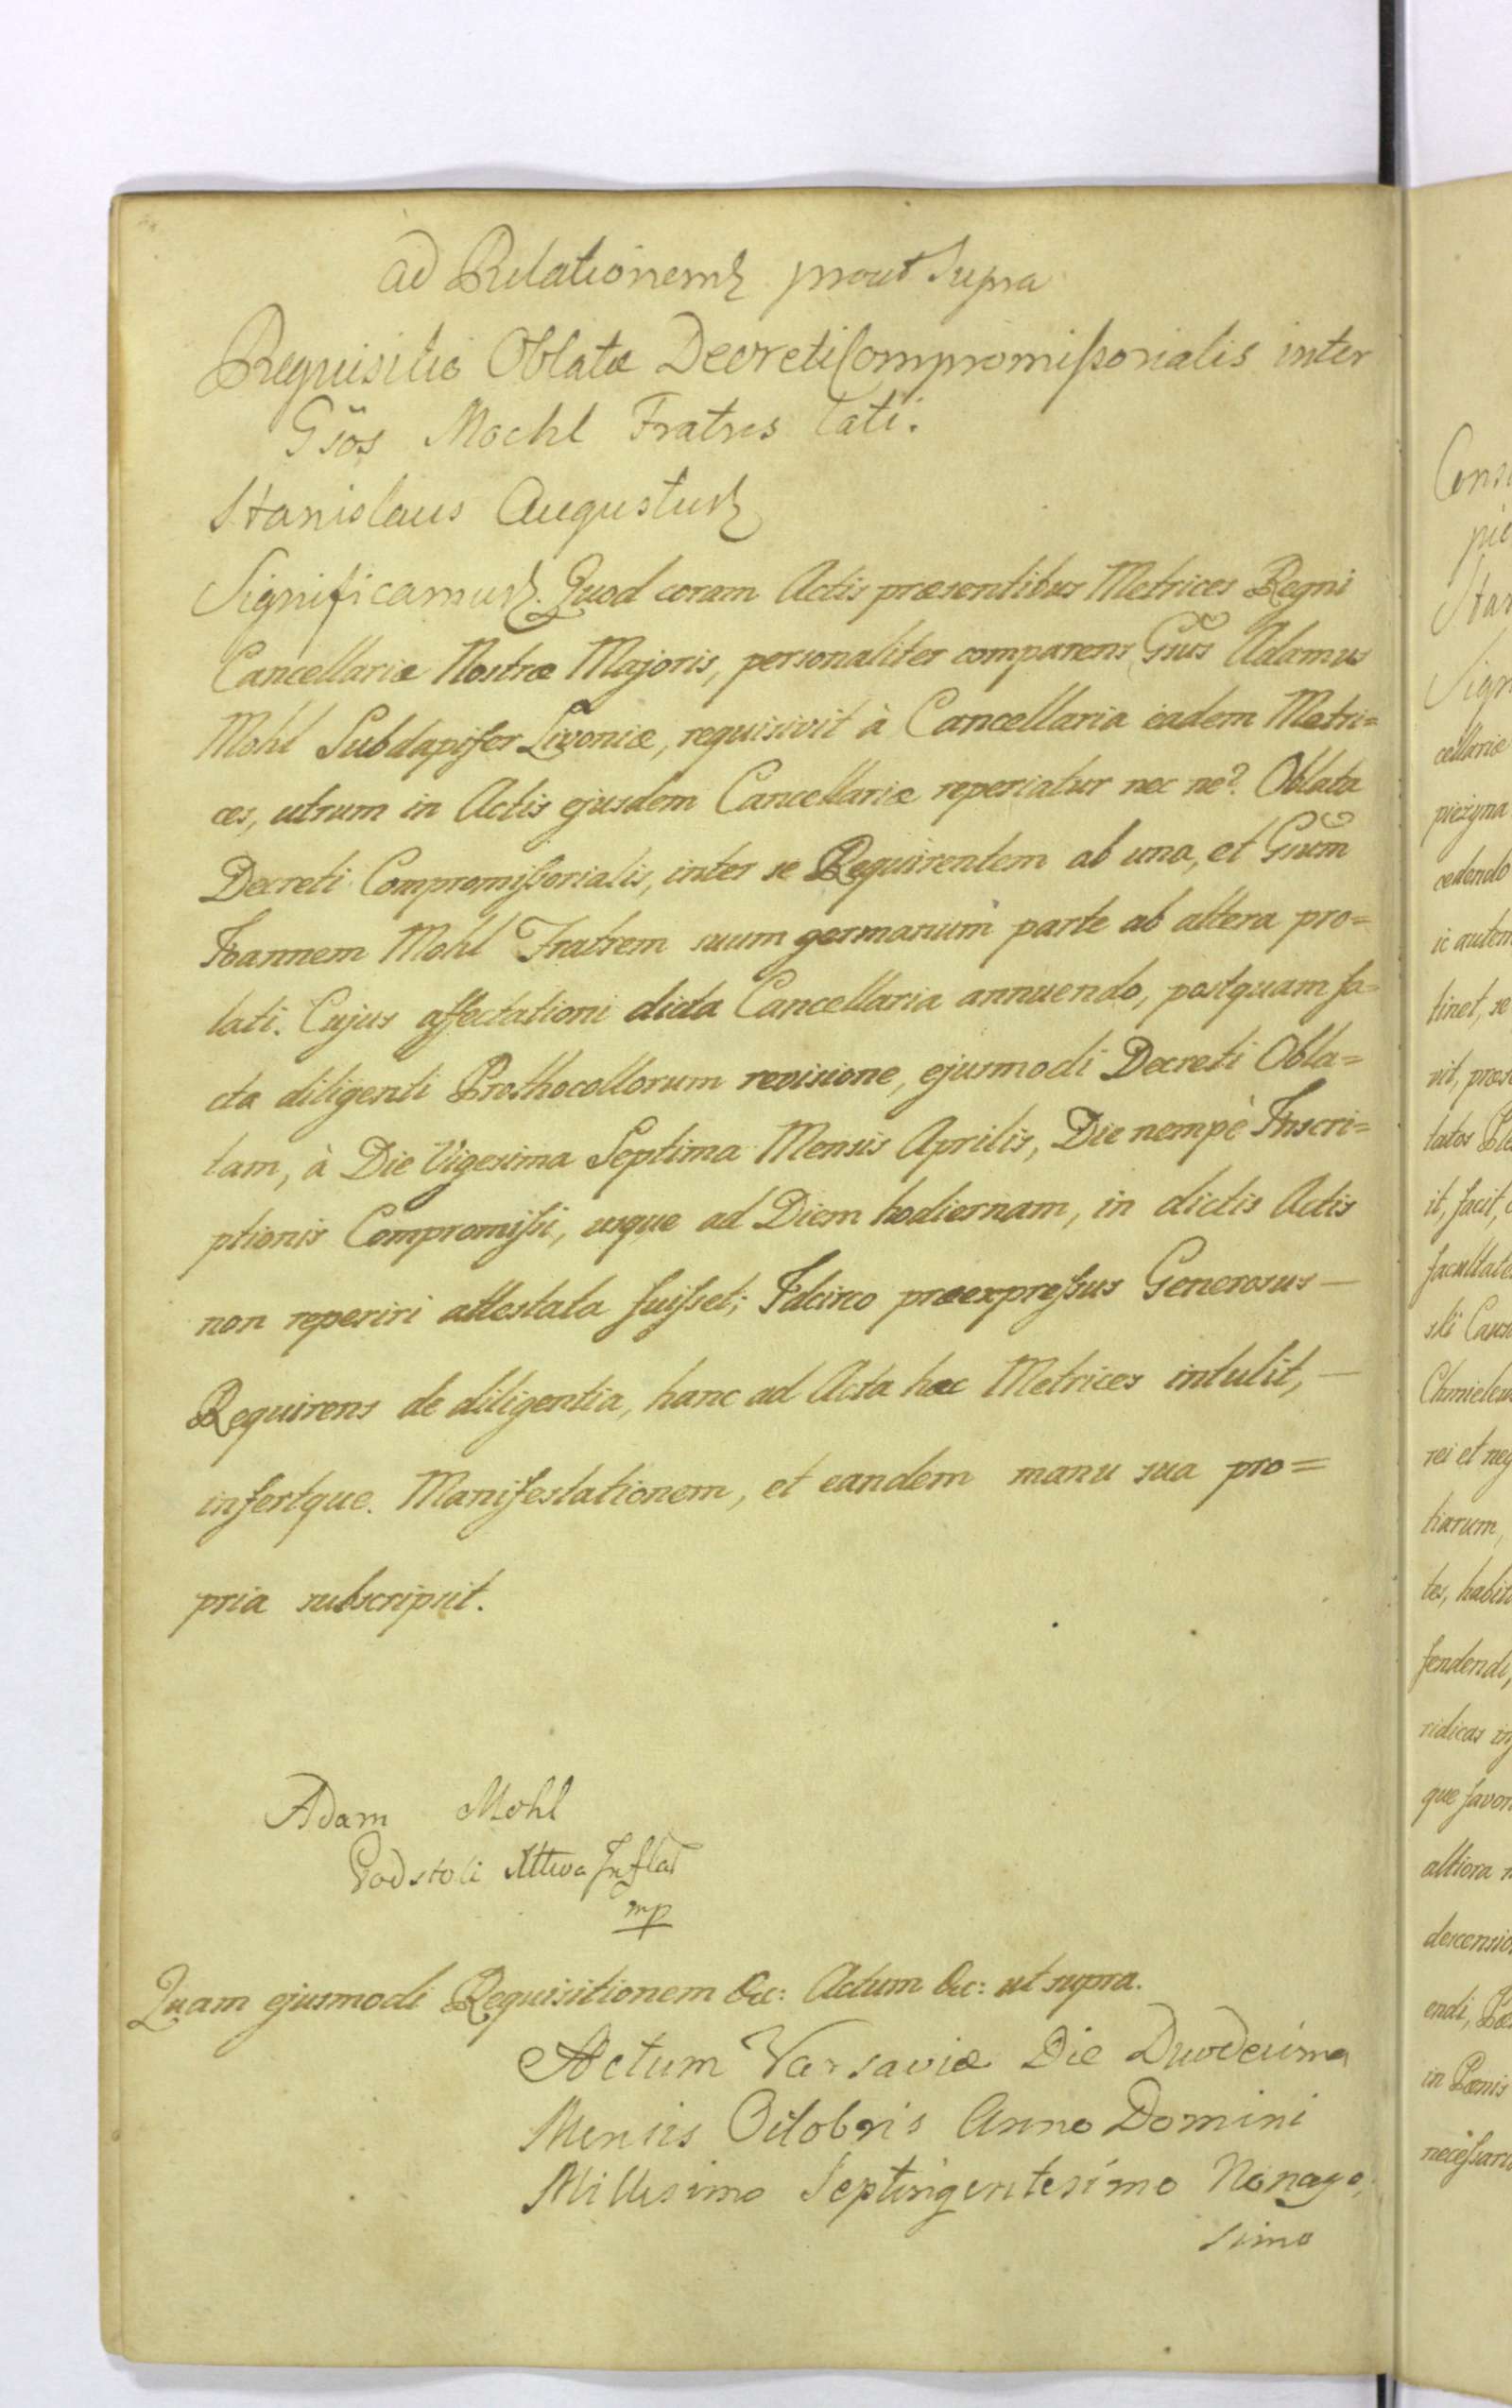 ad Relationem prout supra
Requisitio Oblatæ Decreti Compromissorialis inter
Gsos Mochl Fratres lati.
Stanislaus Augustus
Significamus. Quod coram Actis præsentibus Metrices Regni
Cancellariæ Nostræ Majoris, personaliter comparens Gnus Adamus
Mohl Subdapifer Livoniæ, requisivit à Cancellaria eadem Metri=
ces, utrum in Actis ejusdem Cancellariæ reperiatur nec ne? Oblata
Decreti Compromissorialis, inter se Requirentem ab una, et Gnum
Joannem Mohl Fratrem suum germanum parte ab altera pro=
lati. Cujus affectationi dicta Cancellaria annuendo, postquam fa=
cta diligenti Prothocollorum revisione, ejusmodi Decreti Obla=
tam, à Die Vigesima Septima Mensis Aprilis, Die nempè Inscri=
ptionis Compromissi, usque ad Diem hodiernam, in dictis Actis
non reperiri attestata fuisset; Idcirco præexpressus Generosus —
Requirens de diligentia, hanc ad Acta hæc Metrices intulit, —
infertque. Manifestationem, et eandem manu sua pro=
pria subscripsit.
Adam Mohl
Podstoli Inflat
mp
Quam ejusmodi Requisitionem &c: Actum &c: ut supra.
Actum Varsaviæ Die Duodecima
Mensis Octobris Anno Domini
Millesimo Septingentesimo Nonage,
simo
Cons
pie
Star
Sign
cellariæ
pieżyna
cedendo
ic autem
tinet, se
vit, præs
latos Ple
it, facit, c
facultate
ski Caus
Chmielew
rei et neg
tiarum,
tes, habit
fendendi,
ridicas in
que favor
altiora n
descensio
endi,
in Pœnis
necessari